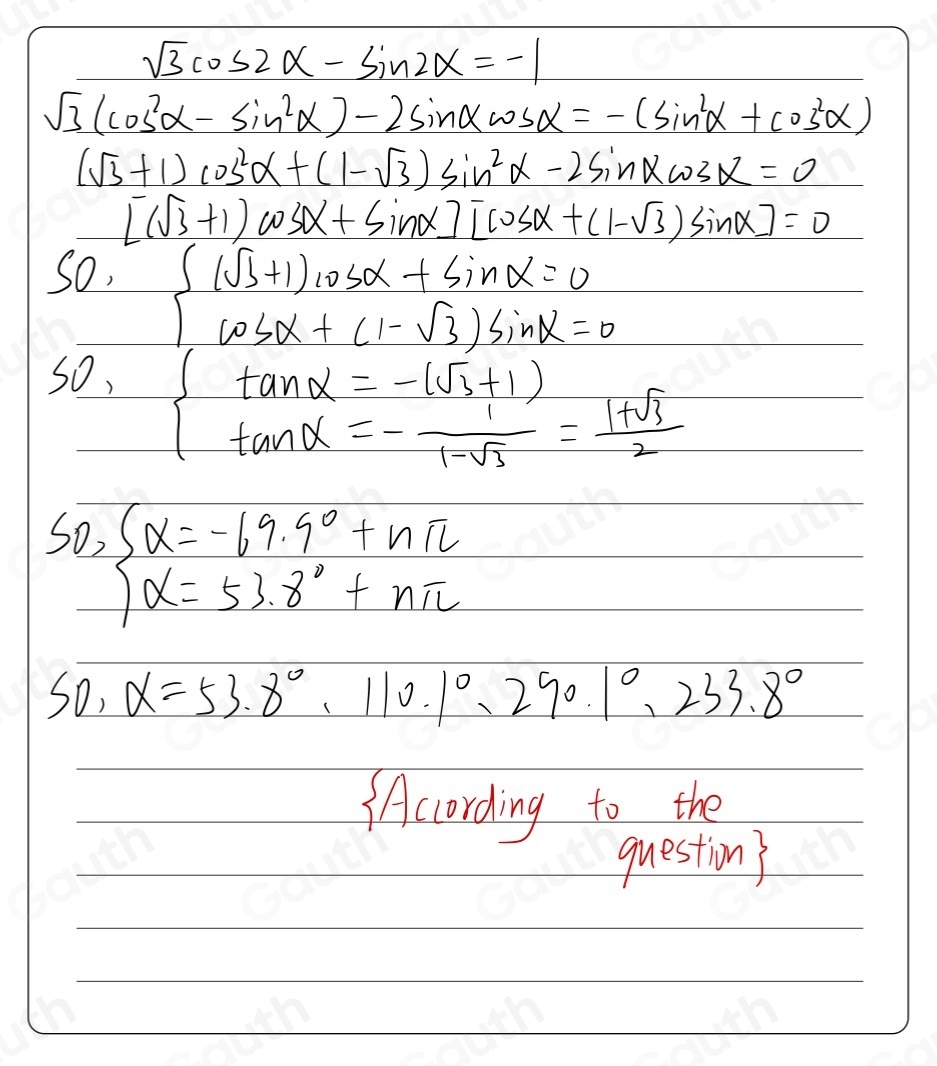 √3cos2α - sin2α = -1
√3(cos²α - sin²α) - 2sinαcosα = -(sin²α + cos²α)
(√3+1)cos²α + (1-√3)sin²α - 2sinαcosα = 0
[(√3+1)cosα + sinα][cosα + (1-√3)sinα] = 0
SO, { (√3+1)cosα + sinα = 0
cosα + (1-√3)sinα = 0
SO, { tanα = -(√3+1)
tanα = - 1/(1-√3) = (1+√3)/2
SO, { α = -69.9° + nπ
α = 53.8° + nπ
SO, α = 53.8°、110.1°、290.1°、233.8°
{According to the
question}